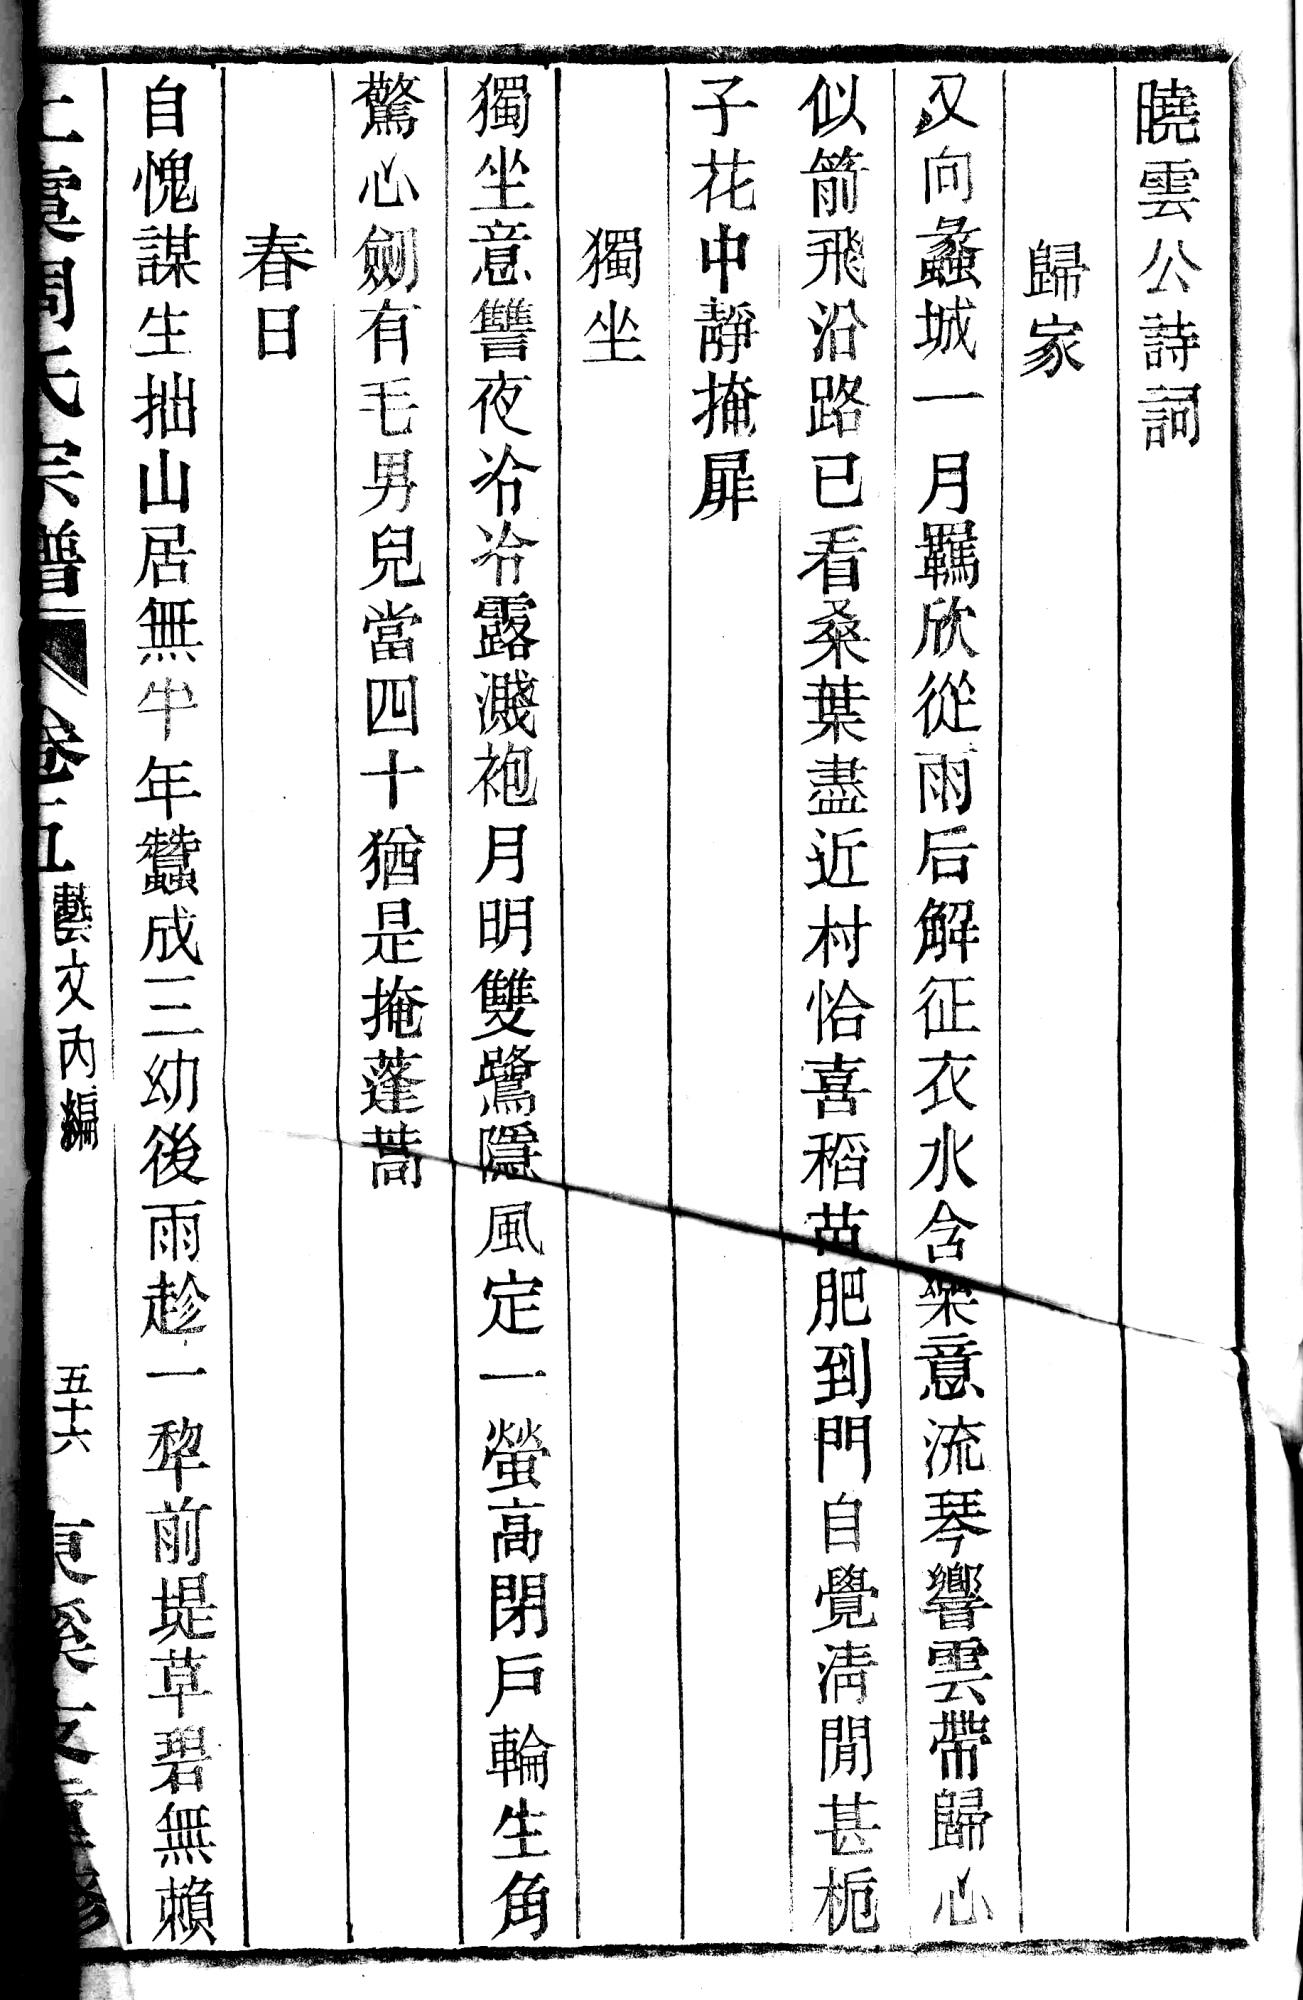 曉雲公詩詞
歸家
又向蠡城一月羈欣從雨后解征衣水含樂意流琴響雲帶歸心
似箭飛沿路已看桑葉盡近村恰喜稻苗肥到門自覺淸閒甚栀
子花中靜掩扉
獨坐
獨坐意讐夜冷冷露濺袍月明雙鷺隱風定一螢高閉戶輪生角
驚心劒有毛男兒當四十猶是掩蓬蒿
春日
自愧謀生拙山居無半年蠶成三幼後雨趁一犂前堤草碧無賴
上虞周氏宗譜 卷五 藝文內編 五十六